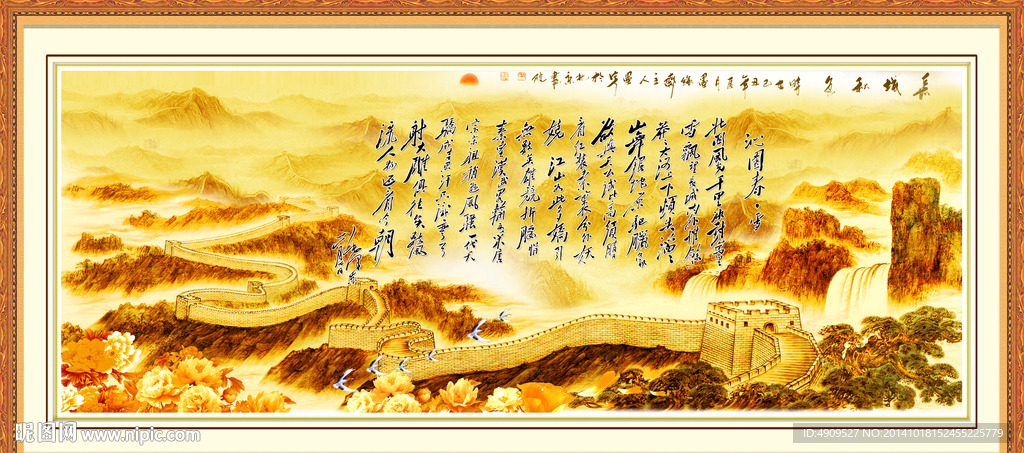 長城秋色
沁园春·雪
北国风光千里冰封万里
雪飘望长城内外惟余
莽莽大河上下顿失滔滔
山舞银蛇原驰蜡象
欲与天公试比高须晴日
看红装素裹分外妖
娆江山如此多娇引
无数英雄竞折腰惜
秦皇汉武略输文采唐
宗宋祖稍逊风骚一代天
骄成吉思汗只识弯弓
射大雕俱往矣数风
流人物还看今朝
毛泽东
昵图网 www.nipic.com
ID:4909527 NO:20141018152455225779